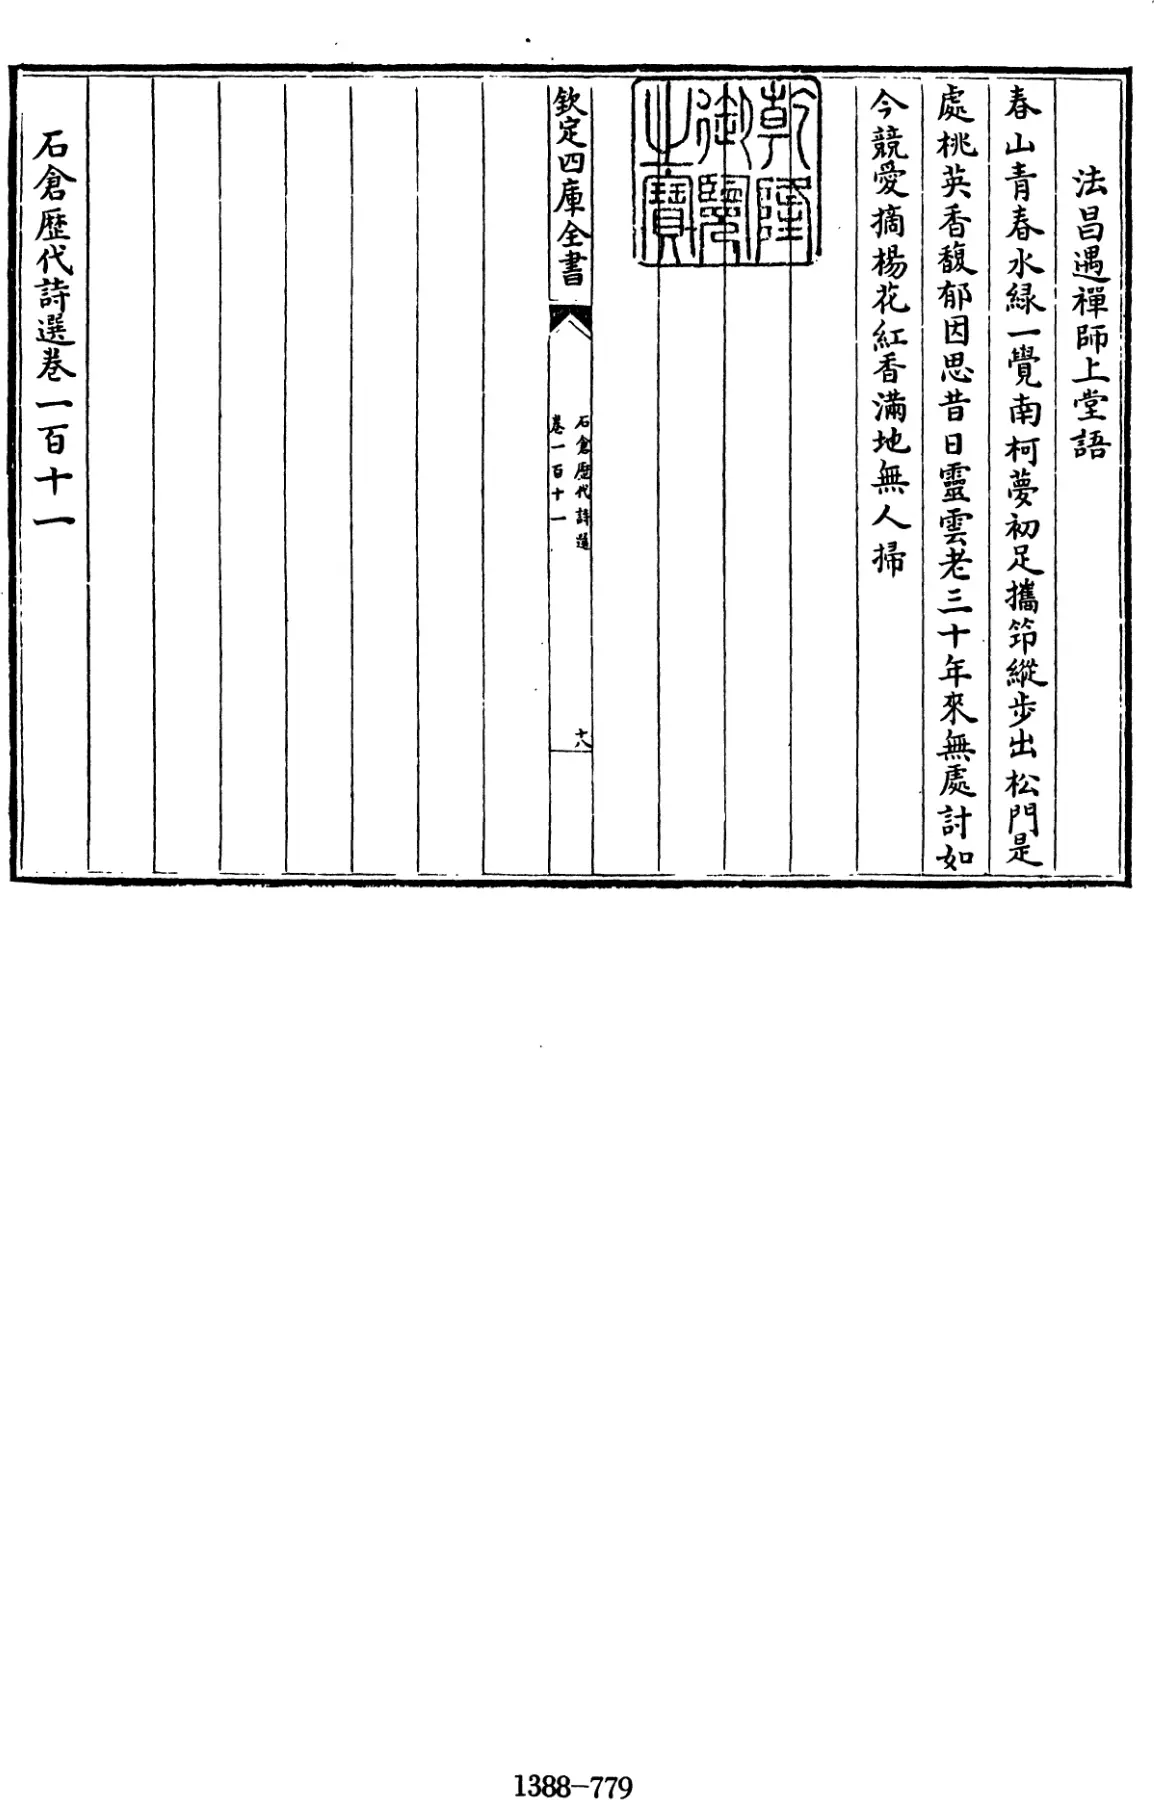 法昌遇禪師上堂語
春山青春水緑一覺南柯夢初足攜笻縱步出松門是
處桃英香馥郁因思昔日靈雲老三十年來無處討如
今競愛摘楊花紅香滿地無人掃
乾隆
御覽
之寶
欽定四庫全書
石倉歷代詩選
卷一百十一
十八
石倉歷代詩選卷一百十一
1388-779